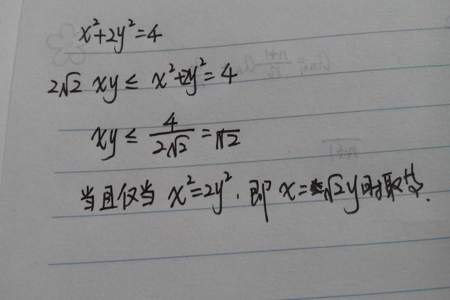 x²+2y²=4
2√2 xy ≤ x²+2y²=4
xy ≤ 4/(2√2) = √2
当且仅当 x²=2y², 即 x=√2y时取等.